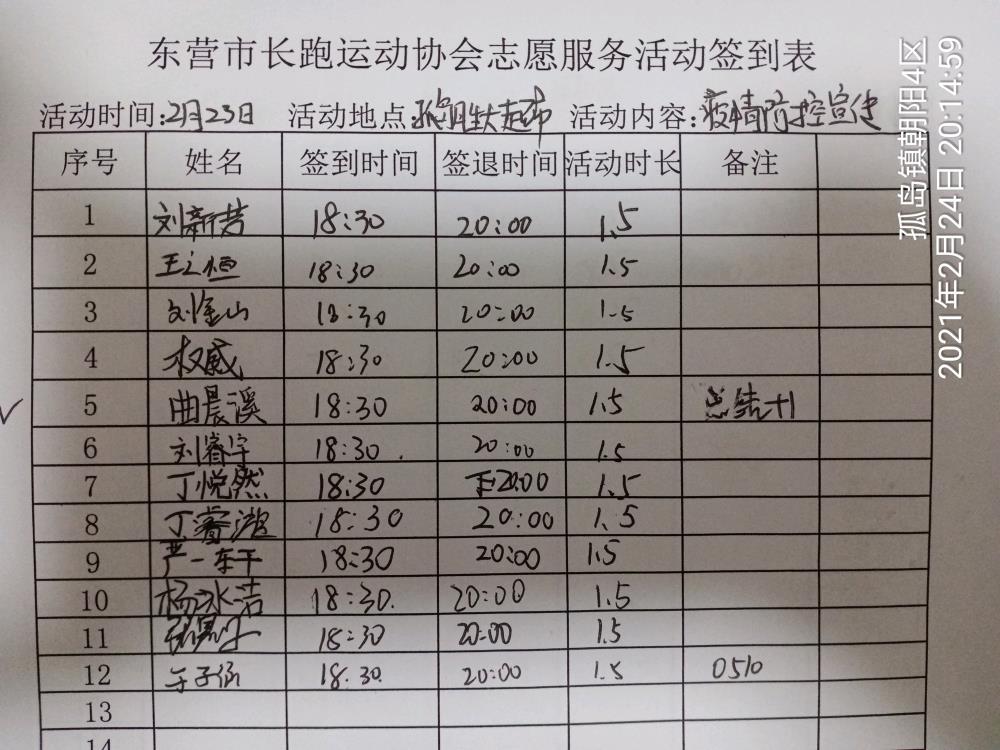 东营市长跑运动协会志愿服务活动签到表
活动时间:2月23日 活动地点: 活动内容:疫情防控宣传
序号 姓名 签到时间 签退时间 活动时长 备注
1 刘新芳 18:30 20:00 1.5
2 王之恒 18:30 20:00 1.5
3 刘金山 18:30 20:00 1.5
4 权威 18:30 20:00 1.5
5 曲晨溪 18:30 20:00 1.5 总结+1
6 刘睿宇 18:30 20:00 1.5
7 丁悦然 18:30 20:00 1.5
8 丁睿 18:30 20:00 1.5
9 严一 18:30 20:00 1.5
10 杨冰洁 18:30 20:00 1.5
11 18:30 20:00 1.5
12 子涵 18:30 20:00 1.5 0510
13
14
孤岛镇朝阳4区
2021年2月24日 20:14:59